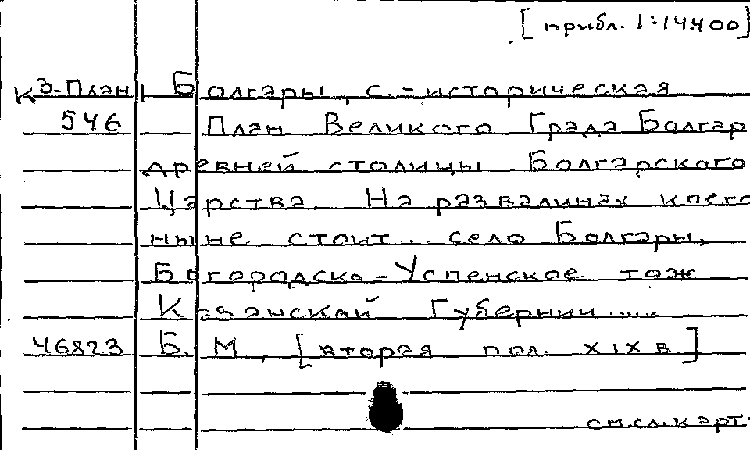 [прибл. 1:14400]
Кэ-План Болгары, с. - историческая
546 План Великого Града Болгар
древней столицы Болгарского
Царства. На развалинах коего
ныне стоит село Болгары,
Богородско-Успенское тож
Казанской Губернии.....
46823 Б. М, [вторая пол. XIX в]
см. сл. карт.